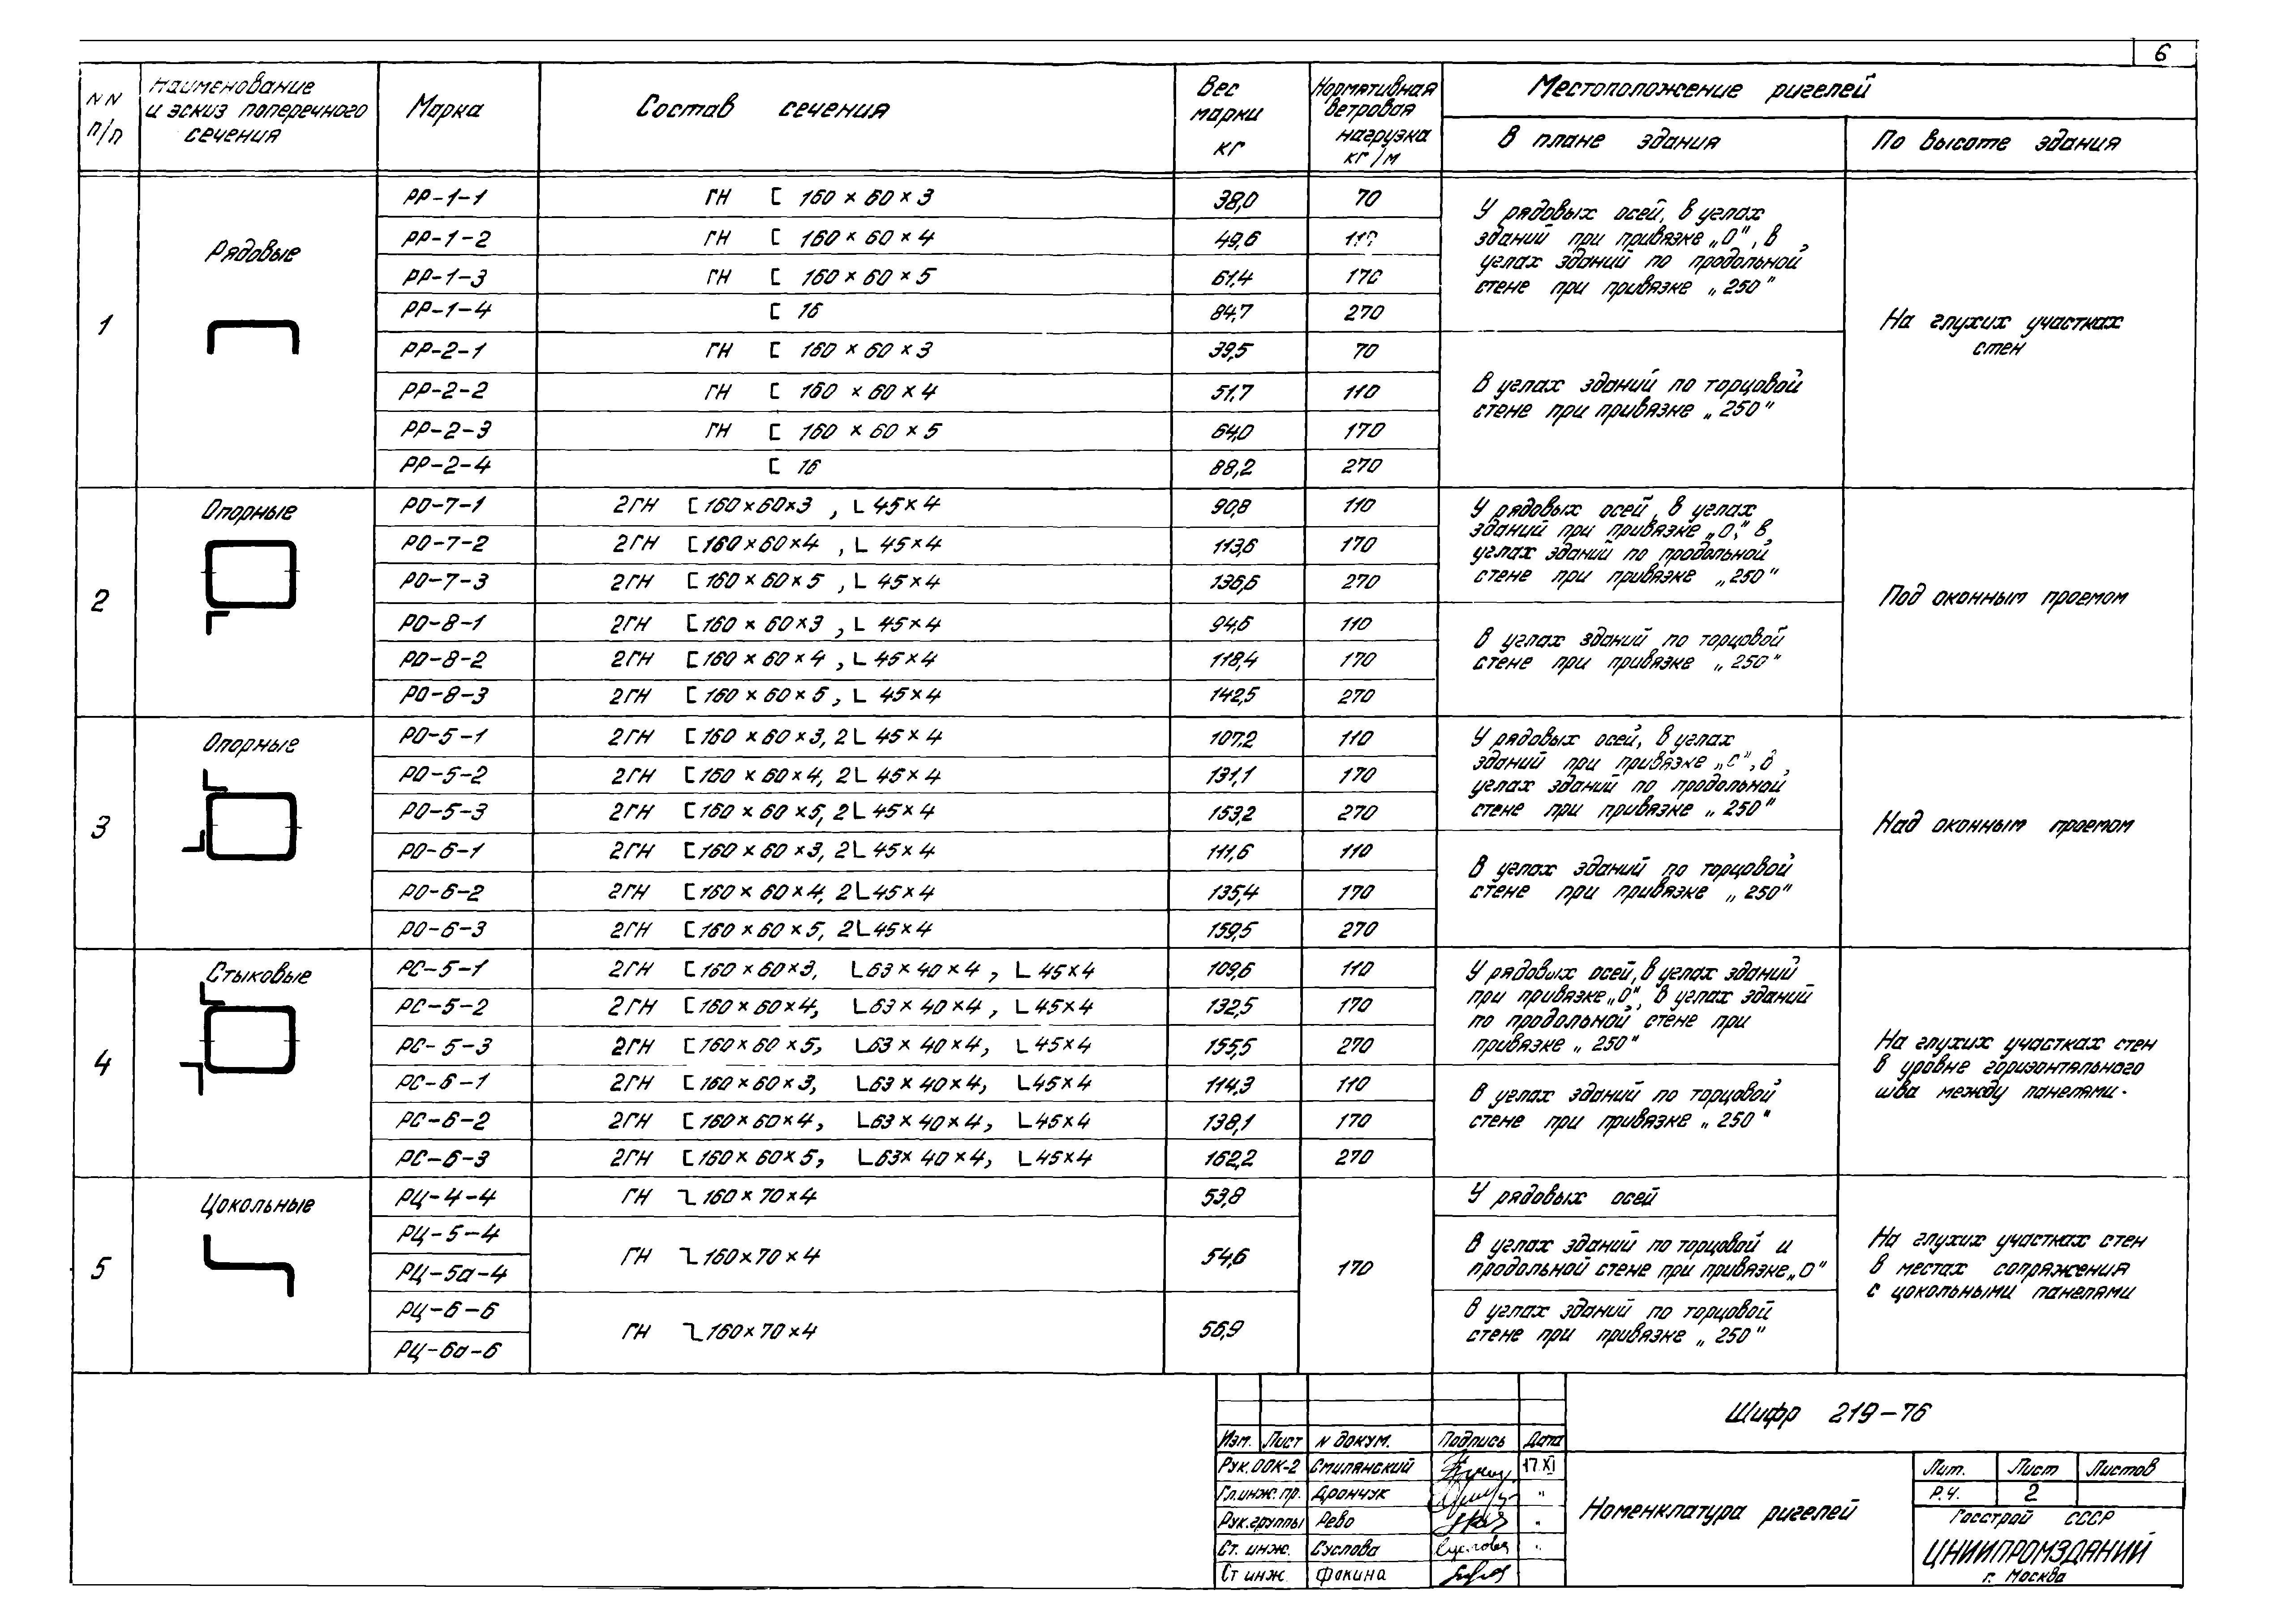 6
NN п/п
Наименование и эскиз поперечного сечения
Марка
Состав сечения
Вес марки кг
Нормативная ветровая нагрузка кг/м
Местоположение ригелей
В плане здания
По высоте здания
1
Рядовые
РР-1-1 ГН [ 160×60×3 38,0 70
РР-1-2 ГН [ 160×60×4 49,6 110
РР-1-3 ГН [ 160×60×5 61,4 170
РР-1-4 [ 16 84,7 270
У рядовых осей, в углах
зданий при привязке „0", в
углах зданий по продольной
стене при привязке „250"
РР-2-1 ГН [ 160×60×3 39,5 70
РР-2-2 ГН [ 160×60×4 51,7 110
РР-2-3 ГН [ 160×60×5 64,0 170
РР-2-4 [ 16 88,2 270
В углах зданий по торцовой
стене при привязке „250"
На глухих участках
стен
2
Опорные
РО-7-1 2ГН [160×60×3, L 45×4 90,8 110
РО-7-2 2ГН [160×60×4, L 45×4 113,6 170
РО-7-3 2ГН [160×60×5, L 45×4 136,6 270
У рядовых осей, в углах
зданий при привязке „0", в
углах зданий по продольной
стене при привязке „250"
РО-8-1 2ГН [160×60×3, L 45×4 94,6 110
РО-8-2 2ГН [160×60×4, L 45×4 118,4 170
РО-8-3 2ГН [160×60×5, L 45×4 142,5 270
В углах зданий по торцовой
стене при привязке „250"
Под оконным проемом
3
Опорные
РО-5-1 2ГН [160×60×3, 2L 45×4 107,2 110
РО-5-2 2ГН [160×60×4, 2L 45×4 131,1 170
РО-5-3 2ГН [160×60×5, 2L 45×4 153,2 270
У рядовых осей, в углах
зданий при привязке „0", в
углах зданий по продольной
стене при привязке „250"
РО-6-1 2ГН [160×60×3, 2L 45×4 111,6 110
РО-6-2 2ГН [160×60×4, 2L 45×4 135,4 170
РО-6-3 2ГН [160×60×5, 2L 45×4 159,5 270
В углах зданий по торцовой
стене при привязке „250"
Над оконным проемом
4
Стыковые
РС-5-1 2ГН [160×60×3, L63×40×4, L 45×4 109,6 110
РС-5-2 2ГН [160×60×4, L63×40×4, L 45×4 132,5 170
РС-5-3 2ГН [160×60×5, L63×40×4, L 45×4 155,5 270
У рядовых осей, в углах зданий
при привязке „0", в углах зданий
по продольной стене при
привязке „250"
РС-6-1 2ГН [160×60×3, L63×40×4, L45×4 114,3 110
РС-6-2 2ГН [160×60×4, L63×40×4, L45×4 138,1 170
РС-6-3 2ГН [160×60×5, L63×40×4, L45×4 162,2 270
В углах зданий по торцовой
стене при привязке „250"
На глухих участках стен
в уровне горизонтального
шва между панелями.
5
Цокольные
РЦ-4-4 ГН 160×70×4 53,8
У рядовых осей
РЦ-5-4
РЦ-5а-4
ГН 160×70×4 54,6
170
В углах зданий по торцовой и
продольной стене при привязке „0"
РЦ-6-6
РЦ-6а-6
ГН 160×70×4 56,9
В углах зданий по торцовой
стене при привязке „250"
На глухих участках стен
в местах сопряжения
с цокольными панелями
Шифр 219-76
Изм. Лист N докум. Подпись Дата
Рук. ООК-2 Смилянский 17 XI
Гл.инж.пр. Дрончук "
Рук.группы Рево "
Ст. инж. Суслова "
Ст инж Фокина
Номенклатура ригелей
Лит. Лист Листов
Р.Ч. 2
Госстрой СССР
ЦНИИПРОМЗДАНИЙ
г. Москва